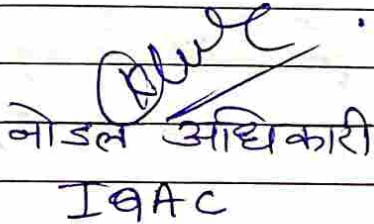 नोडल अधिकारी
IQAC